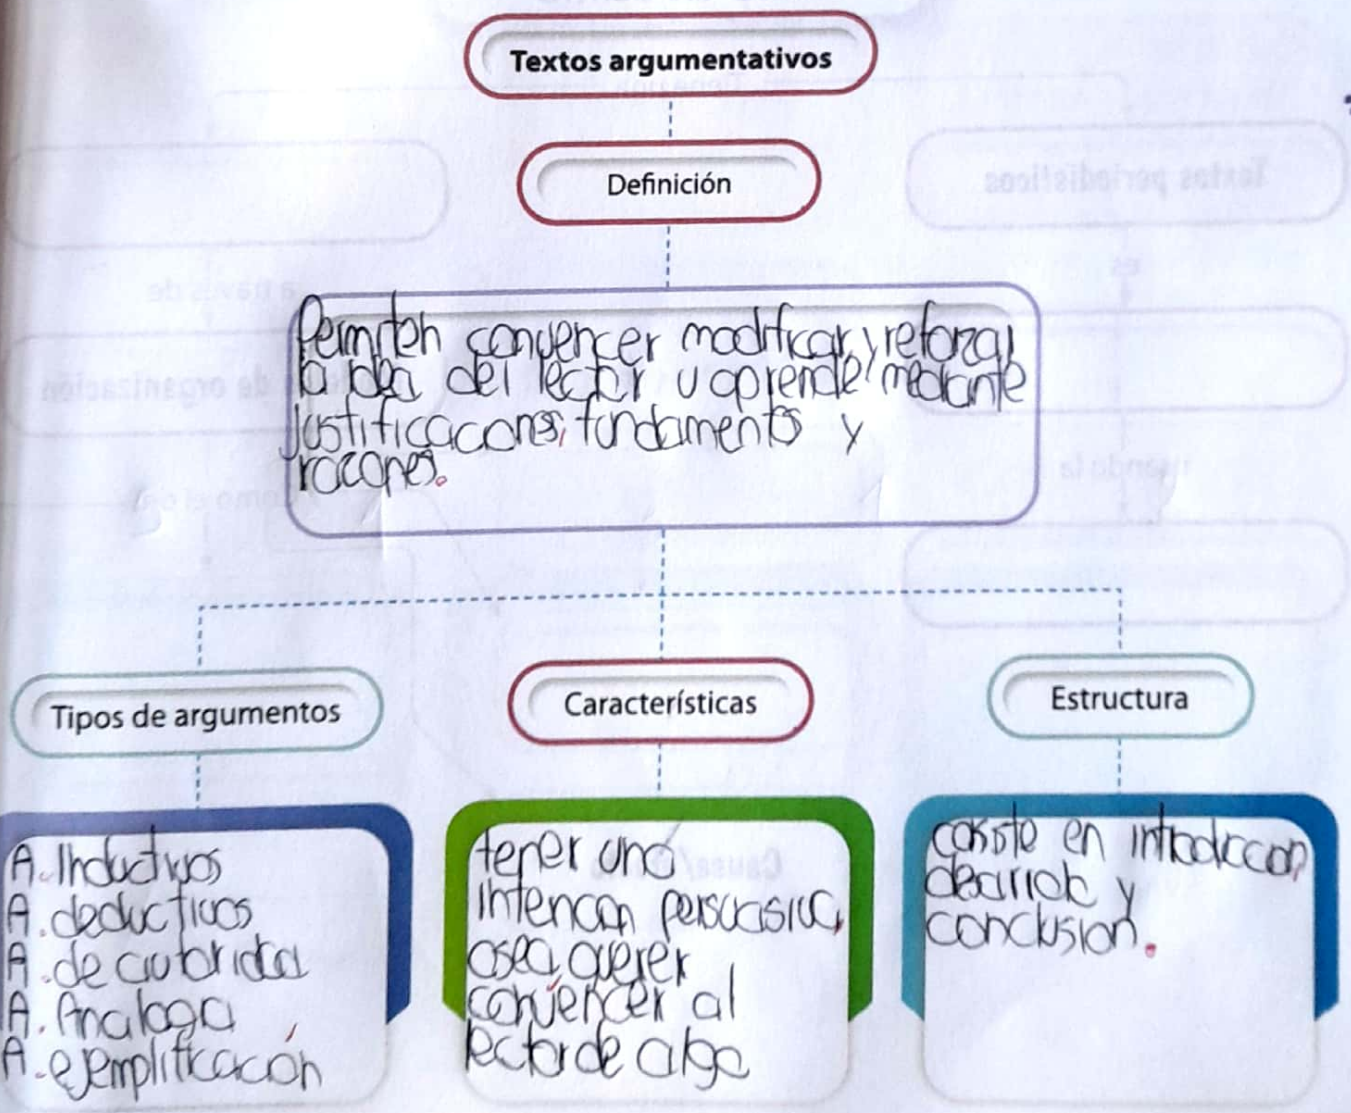 Textos argumentativos
Definición
Permiten convencer modificar, y reforzar
la idea del lector u aprende mediante
justificacions, fundamentos y
razones.
Tipos de argumentos
Características
Estructura
A. Inductivos
A. deductivos
A. de autorida
A. Analoga
A. ejemplificación
tener una
intencion persuasiva,
osea, querer
convencer al
lector de algo
cosiste en introduccion,
desarrollo y
conclusion.
Textos periodísticos
es
a través de
de organización
Causa/